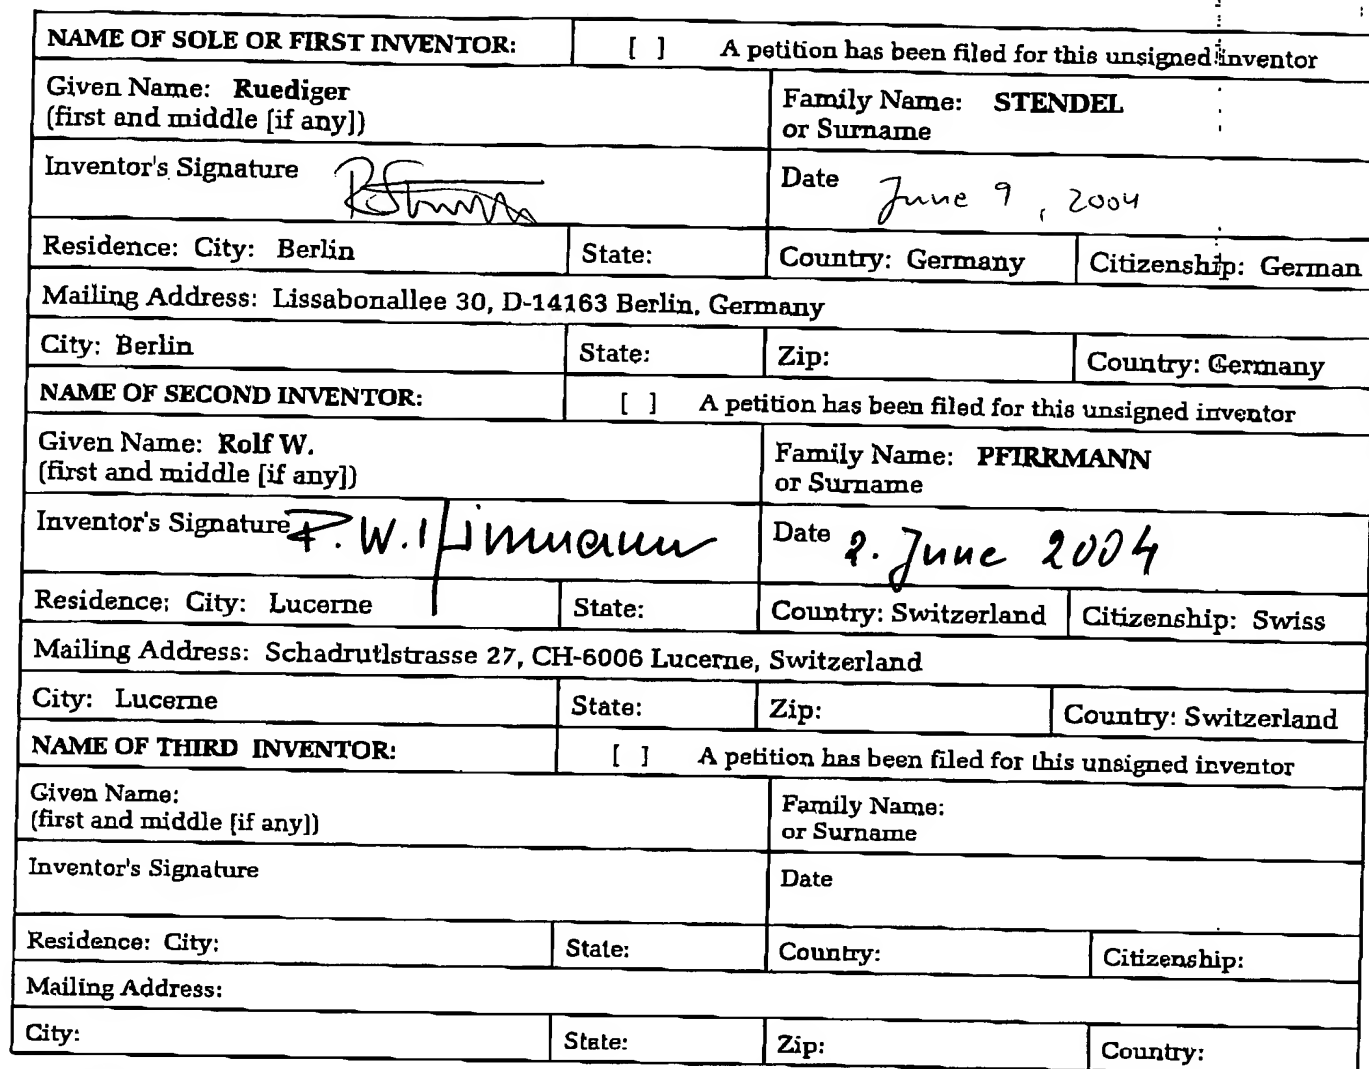 NAME OF SOLE OR FIRST INVENTOR: [ ] A petition has been filed for this unsigned inventor
Given Name: Ruediger Family Name: STENDEL
(first and middle [if any]) or Surname
Inventor's Signature Date June 9, 2004
Residence: City: Berlin State: Country: Germany Citizenship: German
Mailing Address: Lissabonallee 30, D-14163 Berlin, Germany
City: Berlin State: Zip: Country: Germany
NAME OF SECOND INVENTOR: [ ] A petition has been filed for this unsigned inventor
Given Name: Rolf W. Family Name: PFIRRMANN
(first and middle [if any]) or Surname
Inventor's Signature R.W. Pfirrmann Date 2. June 2004
Residence: City: Lucerne State: Country: Switzerland Citizenship: Swiss
Mailing Address: Schadrutlstrasse 27, CH-6006 Lucerne, Switzerland
City: Lucerne State: Zip: Country: Switzerland
NAME OF THIRD INVENTOR: [ ] A petition has been filed for this unsigned inventor
Given Name: Family Name:
(first and middle [if any]) or Surname
Inventor's Signature Date
Residence: City: State: Country: Citizenship:
Mailing Address:
City: State: Zip: Country: